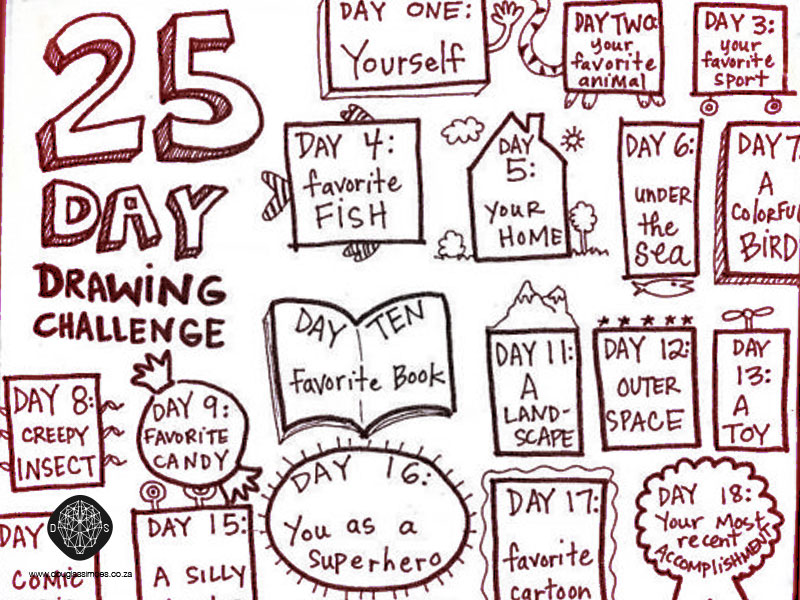 25
DAY
DRAWING
CHALLENGE
DAY ONE:
Yourself
DAY TWO:
your
favorite
animal
DAY 3:
your
favorite
sport
DAY 4:
favorite
FISH
DAY
5:
YOUR
HOME
DAY 6:
UNDER
the
sea
DAY 7
A
COLORFUL
BIRD
DAY 8:
CREEPY
INSECT
DAY 9:
FAVORITE
CANDY
DAY TEN
favorite Book
DAY 11:
A
LAND-
SCAPE
DAY 12:
OUTER
SPACE
DAY
13:
A
TOY
DAY
COMIC
DAY 15:
A SILLY
DAY 16:
You as a
Superhero
DAY 17:
favorite
cartoon
DAY 18:
Your Most
recent
ACCOMPLISHMENT
D S
www.douglassimiles.co.za